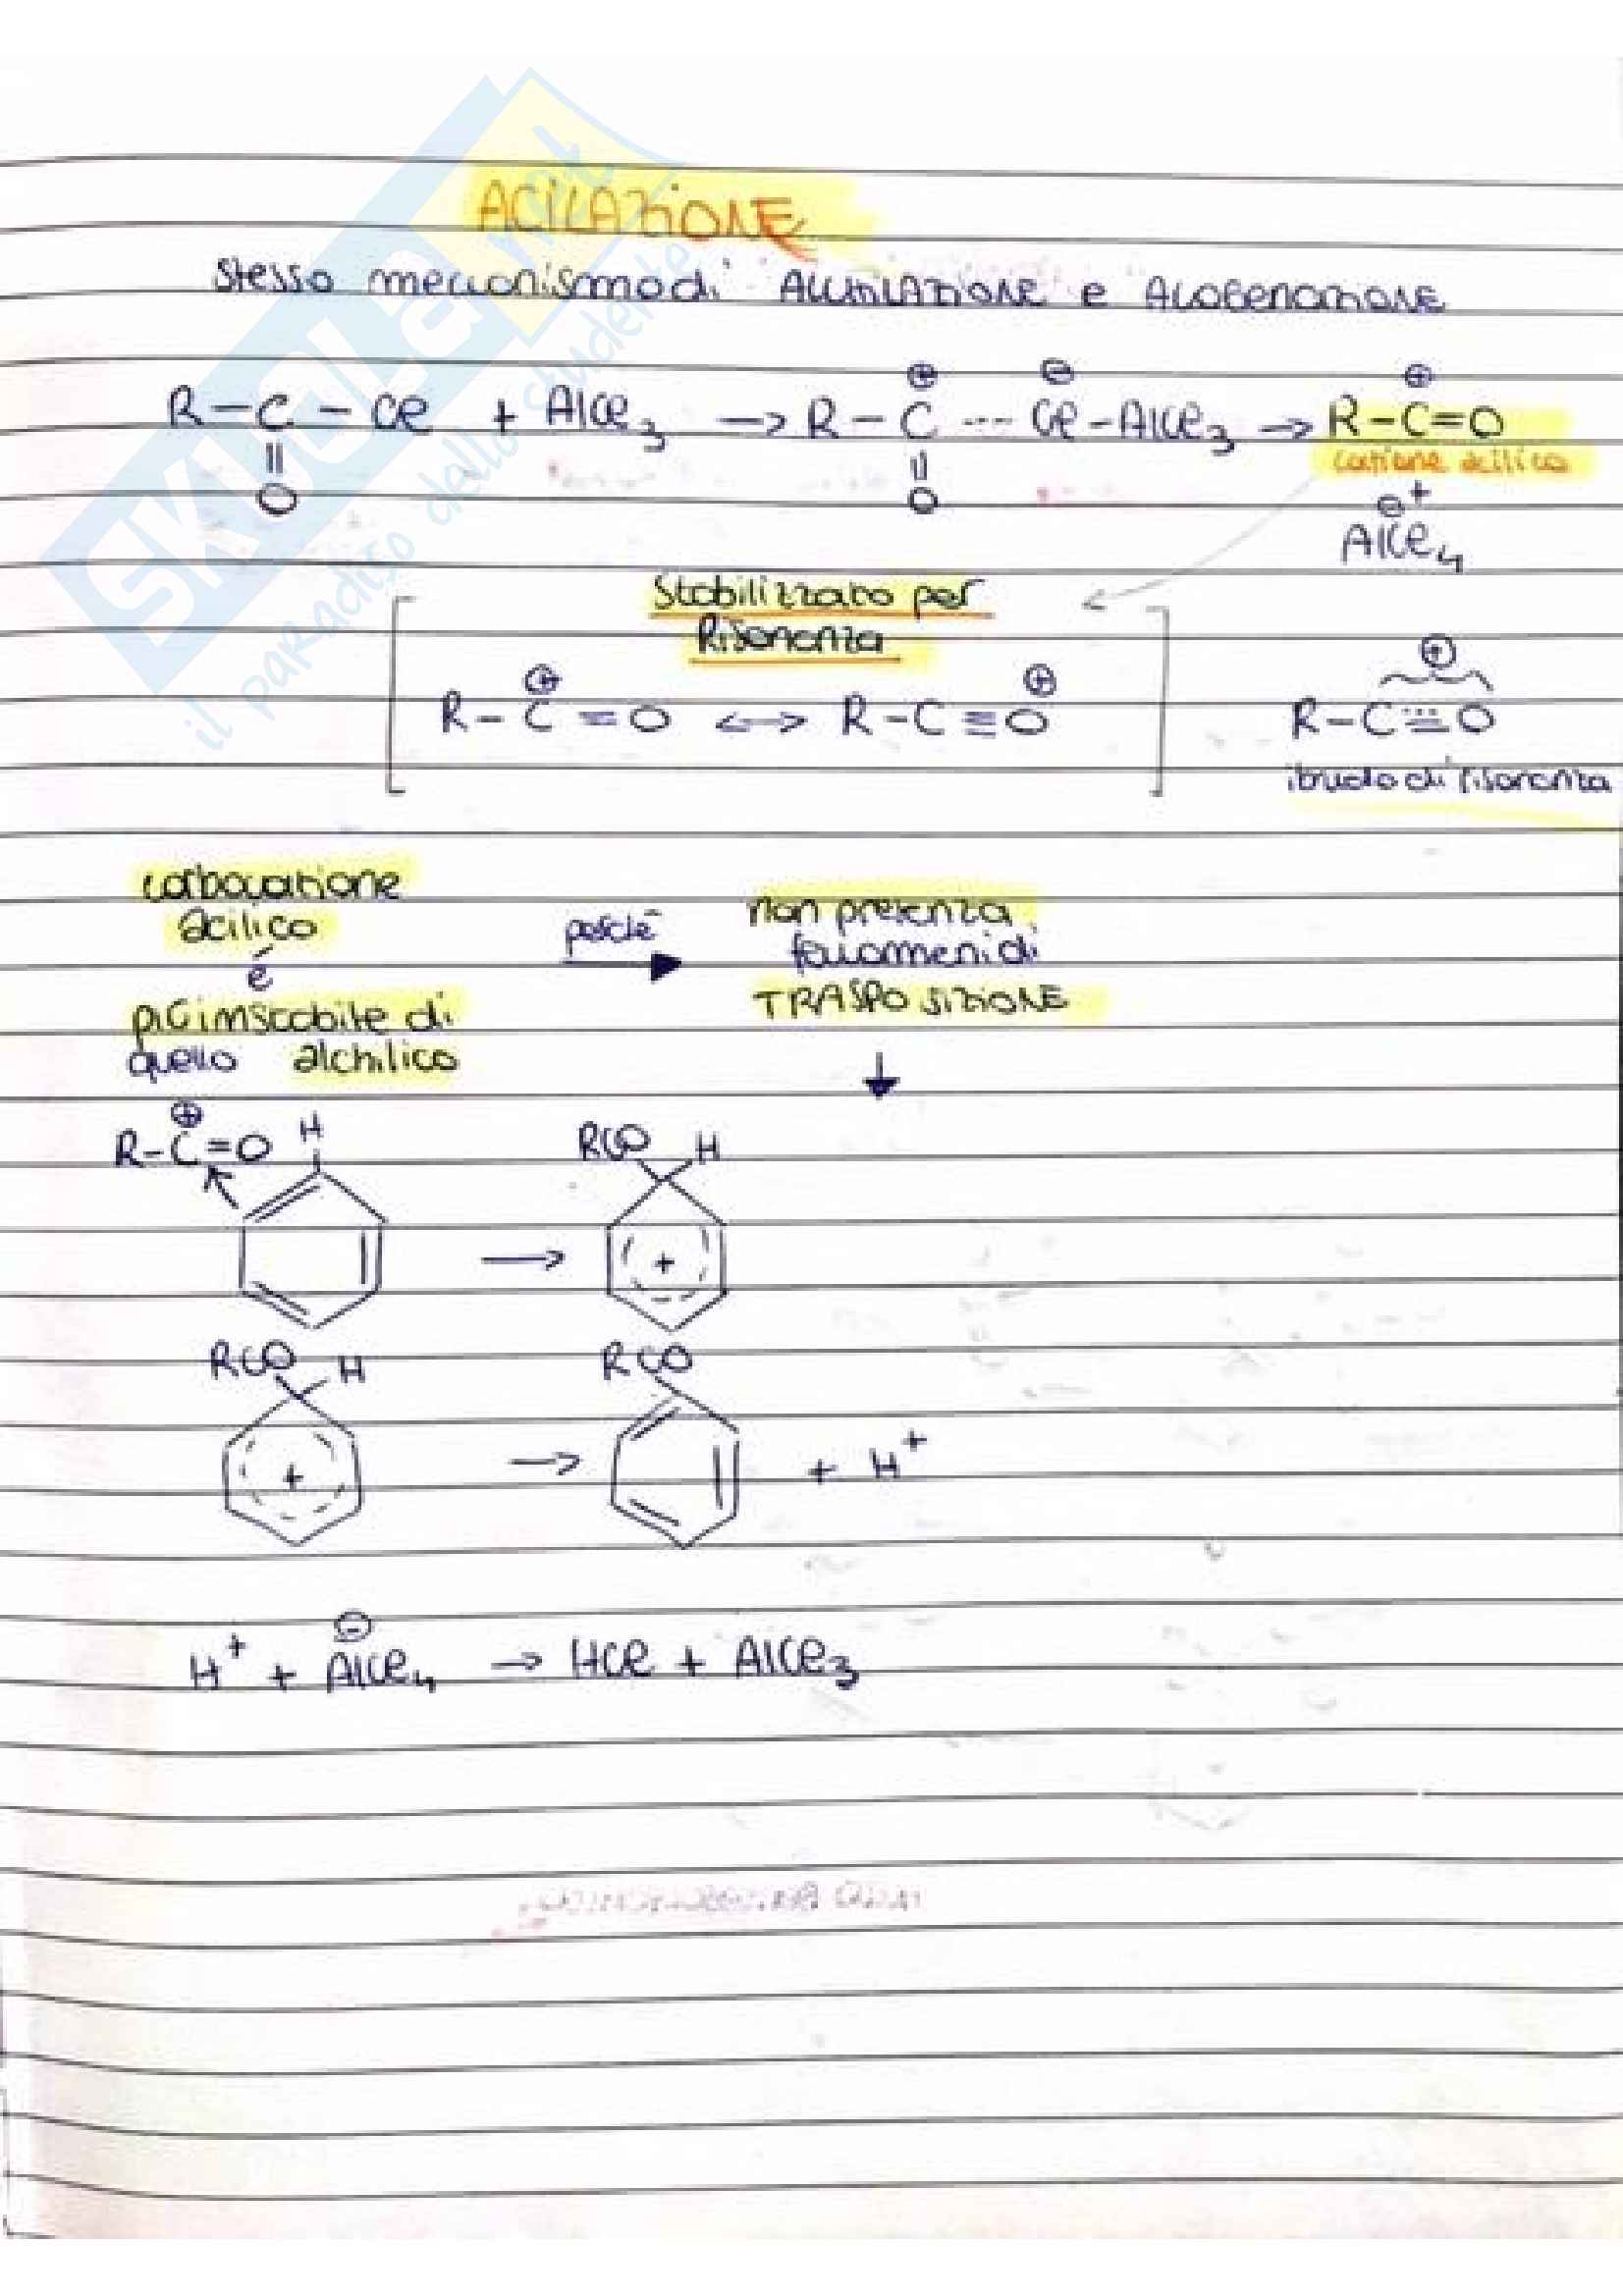 ACILAZIONE
Stesso meccanismo di ALCHILAZIONE e ALOGENAZIONE
⊕ ⊖ ⊕
R - C - Cl + AlCl3 → R - C --- Cl - AlCl3 → R - C = O
|| || catione acilico
O O ⊖ +
AlCl4
Stabilizzato per
Risonanza
⊕ ⊕ ⊕
R - C = O ↔ R - C ≡ O R - C ≡ O
ibrido di risonanza
carbocatione
acilico
é
più instabile di
quello alchilico
perchè
non presenza
fenomeni di
TRASPOSIZIONE
↓
⊕
R - C = O H → RCO H
+
RCO H → RCO + H+
+
⊖
H+ + AlCl4 → HCl + AlCl3
SKUOLA.net
il paradiso dello studente